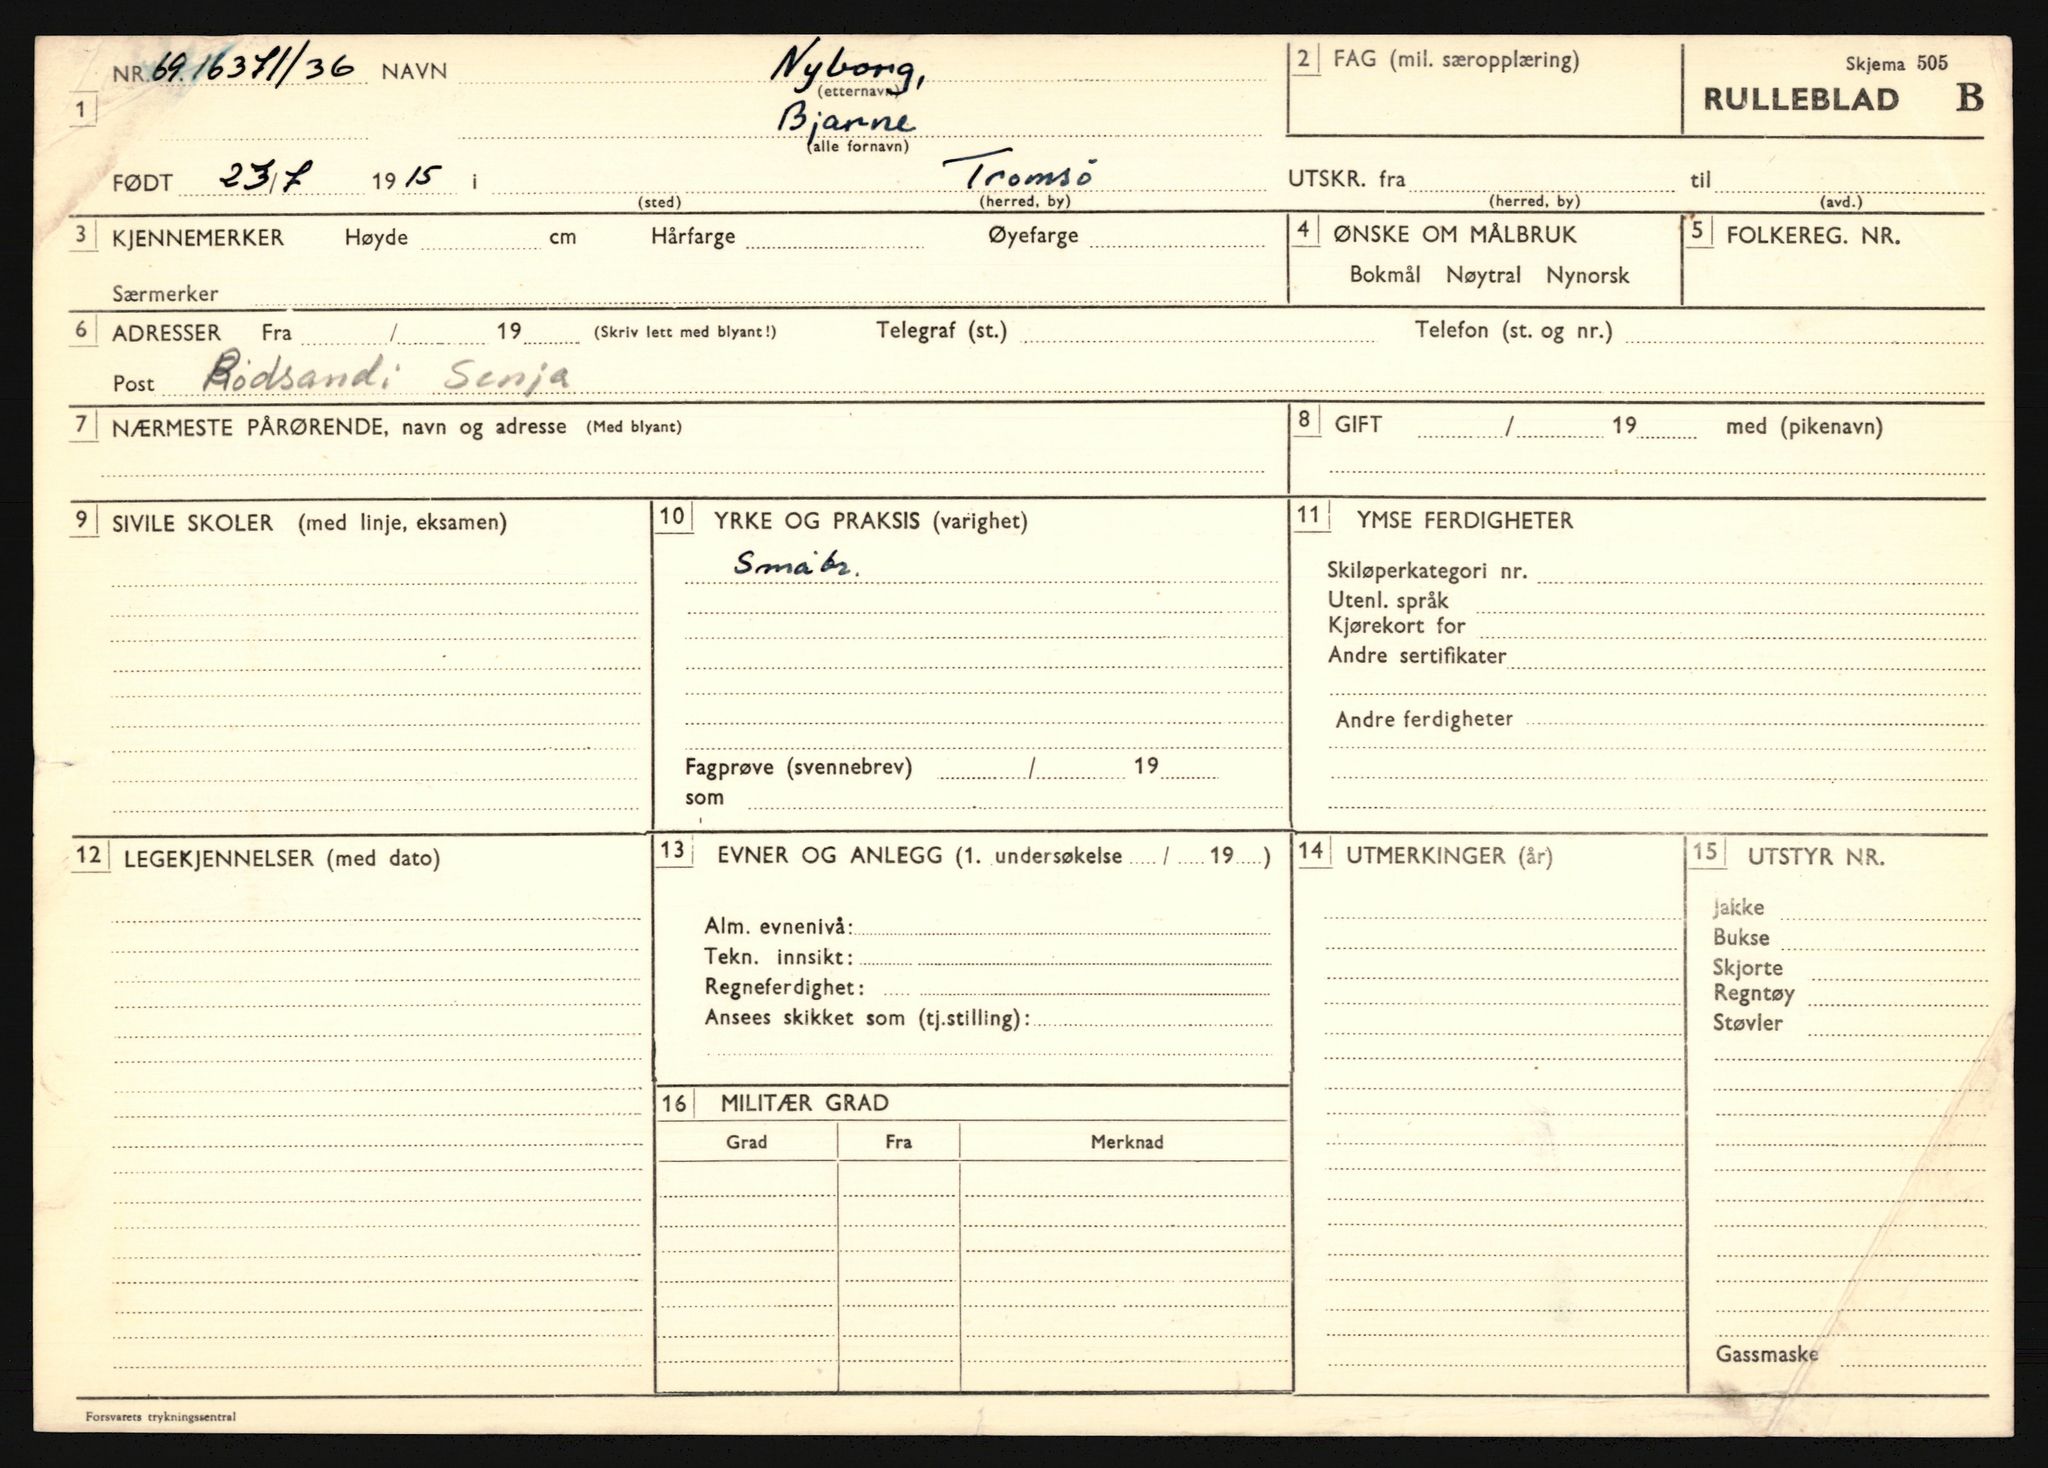 NR. 69.16371/36 NAVN Nyborg,
(etternavn)
1
Bjarne
(alle fornavn)
2 FAG (mil. særopplæring)
Skjema 505
RULLEBLAD B
FØDT 23/7 1915 i Tromsö UTSKR. fra til
(sted) (herred, by) (herred, by) (avd.)
3 KJENNEMERKER Høyde cm Hårfarge Øyefarge
Særmerker
4 ØNSKE OM MÅLBRUK
Bokmål Nøytral Nynorsk
5 FOLKEREG. NR.
6 ADRESSER Fra / 19 (Skriv lett med blyant!) Telegraf (st.) Telefon (st. og nr.)
Post Rödsand i Senja
7 NÆRMESTE PÅRØRENDE, navn og adresse (Med blyant)
8 GIFT / 19 med (pikenavn)
9 SIVILE SKOLER (med linje, eksamen)
10 YRKE OG PRAKSIS (varighet)
Småbr.
Fagprøve (svennebrev) / 19
som
11 YMSE FERDIGHETER
Skiløperkategori nr.
Utenl. språk
Kjørekort for
Andre sertifikater
Andre ferdigheter
12 LEGEKJENNELSER (med dato)
13 EVNER OG ANLEGG (1. undersøkelse / 19 )
Alm. evnenivå:
Tekn. innsikt:
Regneferdighet:
Ansees skikket som (tj.stilling):
14 UTMERKINGER (år)
15 UTSTYR NR.
Jakke
Bukse
Skjorte
Regntøy
Støvler
Gassmaske
16 MILITÆR GRAD
Grad Fra Merknad
Forsvarets trykningssentral